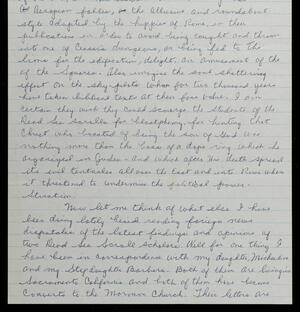 or Aesopian fables, or the allusive and roundabout
style adapted by the hippies of Rome, in their
publication in order to avoid being caught and thrown
into one of Ceasar's dungeons, or being fed to the
lions for the edification, delight, or amusement of the
of the Squares. Also imagine the soul shattering
effect on the sky-pilots whom for two thousand years
have taken childish texts at their face value. I am
certain they wish they could scourge the students of the
Dead Sea Scrolls for blasphemy, for hinting that
Christ who boasted of being the son of God was
nothing more than the boss of a dope ring which he
organized in Judea - and which after his death spread
its evil tentacles all over the East and into Rome when
it threatened to undermine the political power-
Structure.
Now let me think of what else I have
been doing lately beside reading foreign news
dispatches of the latest findings and opinions of
two Dead Sea Scrolls Scholars. Well for one thing I
have been in correspondence with my daughter, Michaelin
and my Stepdaughter Barbara. Both of them are living in
Sacramento California and both of them have become
Converts to the Mormon Church. Their letters are